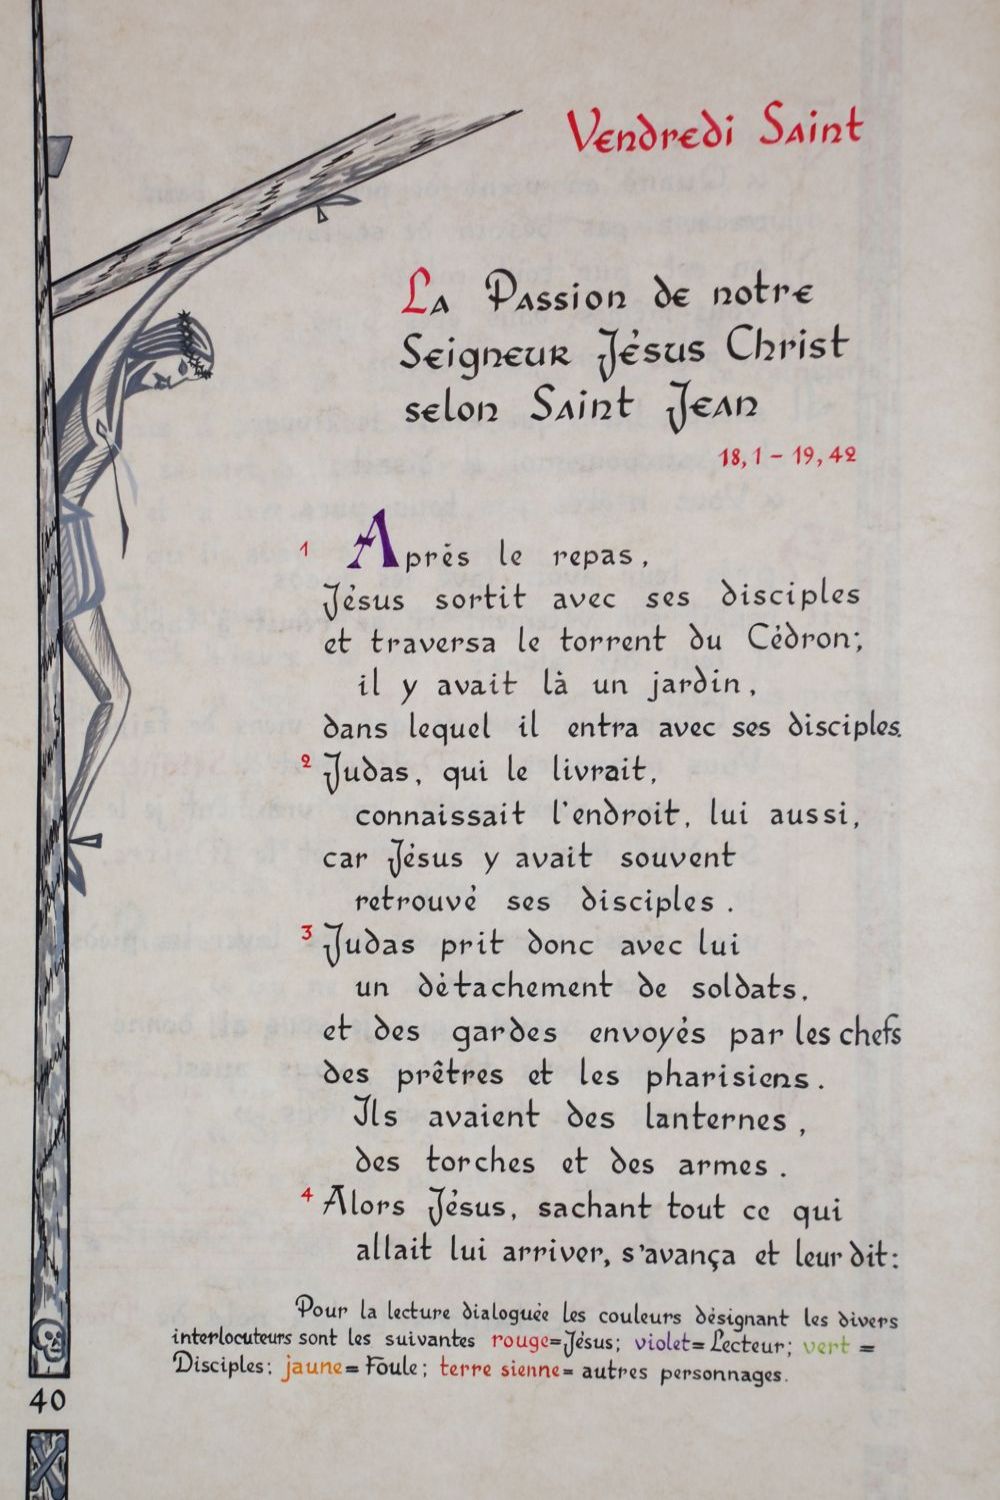 Vendredi Saint
La Passion de notre
Seigneur Jésus Christ
selon Saint Jean
18,1 - 19,42
1 Après le repas,
Jésus sortit avec ses disciples
et traversa le torrent du Cédron;
il y avait là un jardin,
dans lequel il entra avec ses disciples.
2 Judas, qui le livrait,
connaissait l'endroit, lui aussi,
car Jésus y avait souvent
retrouvé ses disciples.
3 Judas prit donc avec lui
un détachement de soldats,
et des gardes envoyés par les chefs
des prêtres et les pharisiens.
Ils avaient des lanternes,
des torches et des armes.
4 Alors Jésus, sachant tout ce qui
allait lui arriver, s'avança et leur dit:
Pour la lecture dialoguée les couleurs désignant les divers
interlocuteurs sont les suivantes rouge=Jésus; violet=Lecteur; vert =
Disciples; jaune=Foule; terre sienne= autres personnages.
40